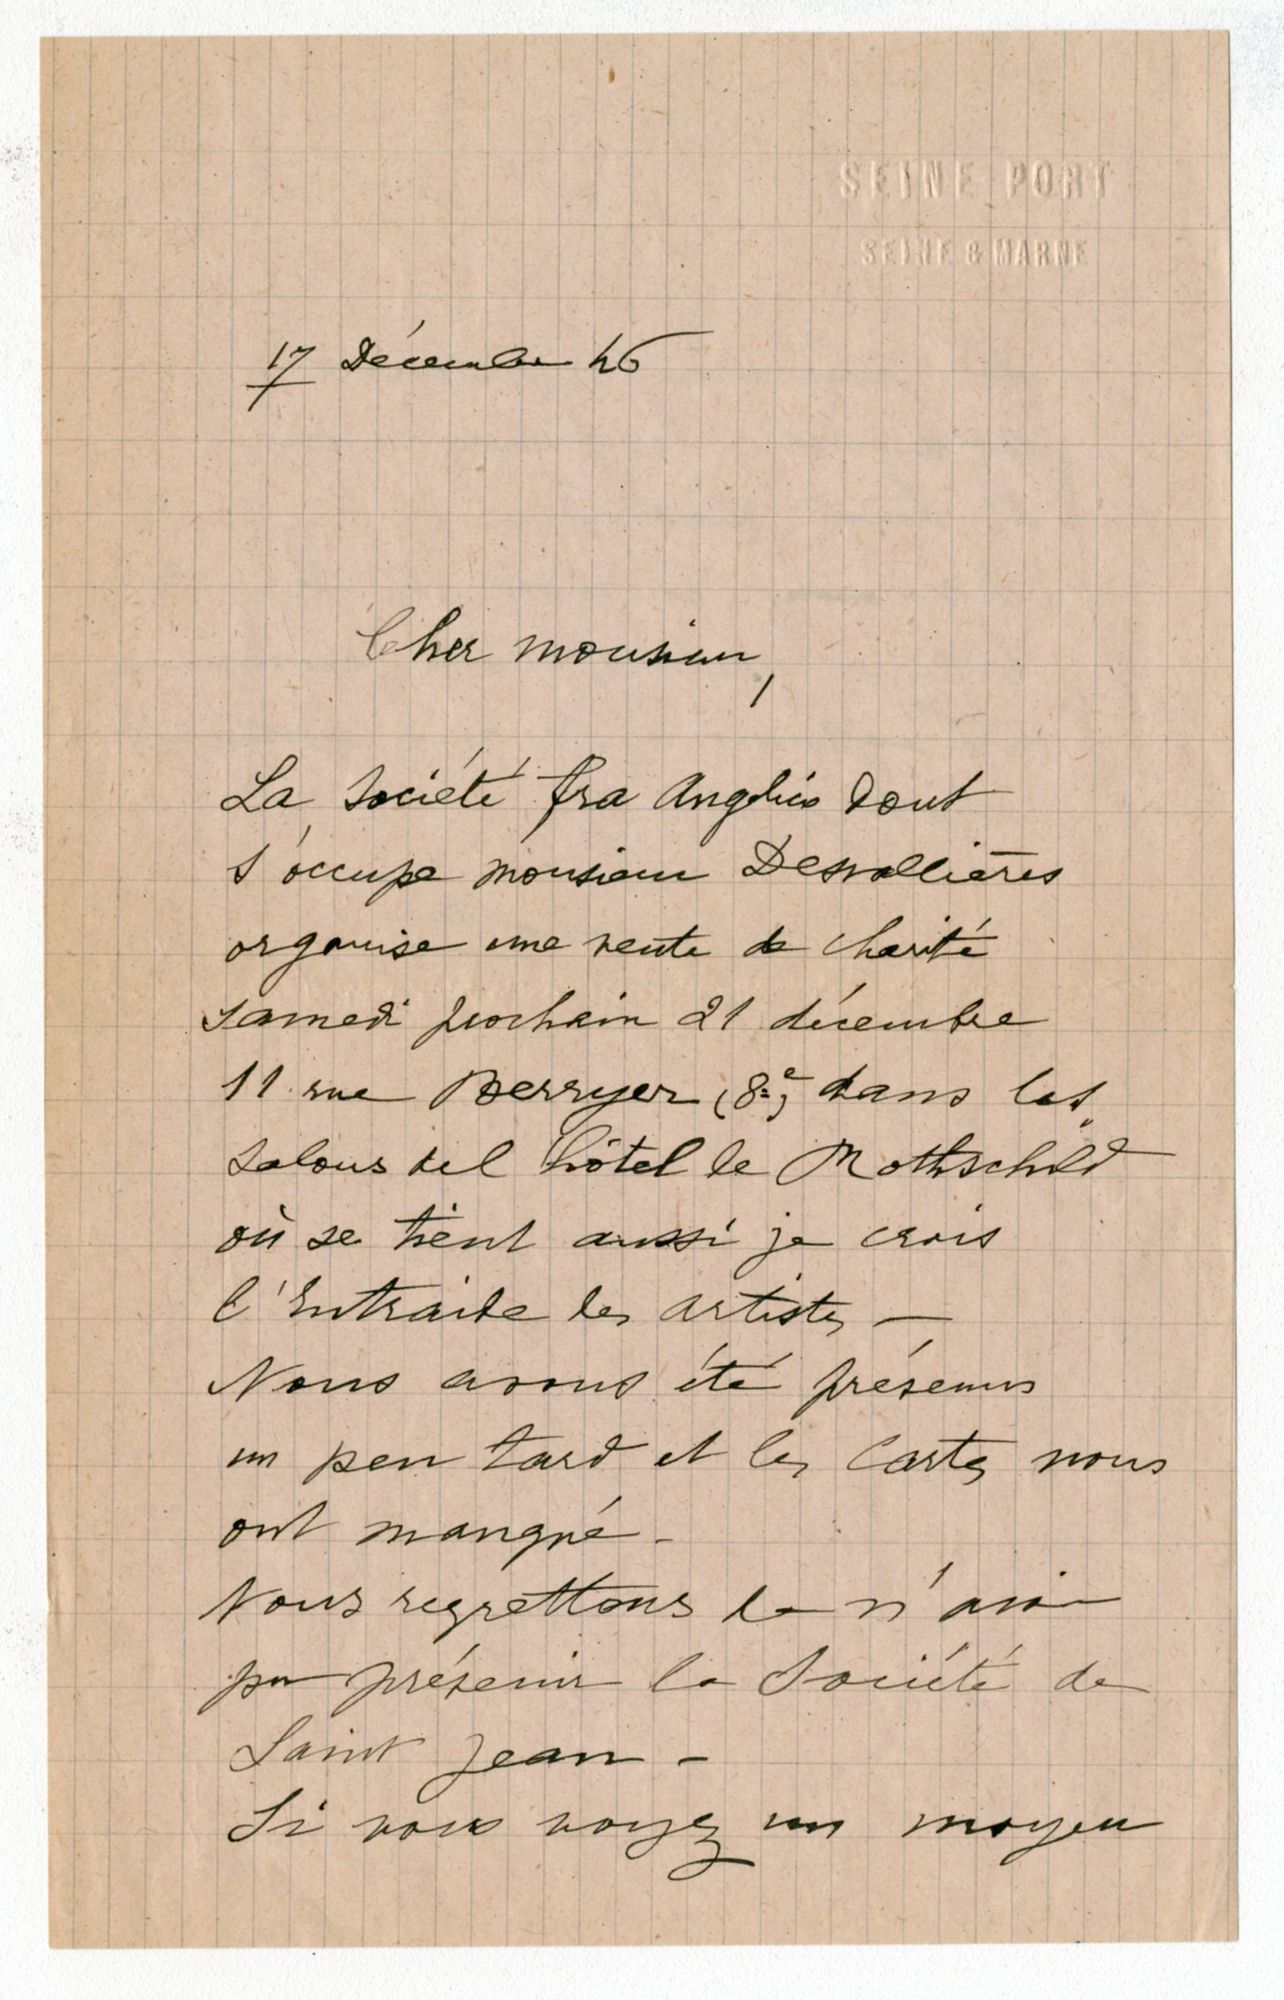 SEINE PORT
SEINE & MARNE
17 Décembre 46
Cher monsieur,
La Société fra Angelico dont
s'occupe monsieur Desvallières
organise une vente de charité
samedi prochain 21 décembre
11 rue Berryer (8e) dans les
salons del hôtel de Rothschild
où se tient aussi je crois
l'Entraide des artistes —
Nous avons été prévenus
un peu tard et les cartes nous
ont manqué -
Nous regrettons de n'avoir
pu prévenir la Société de
Saint Jean -
Si vous voyez un moyen